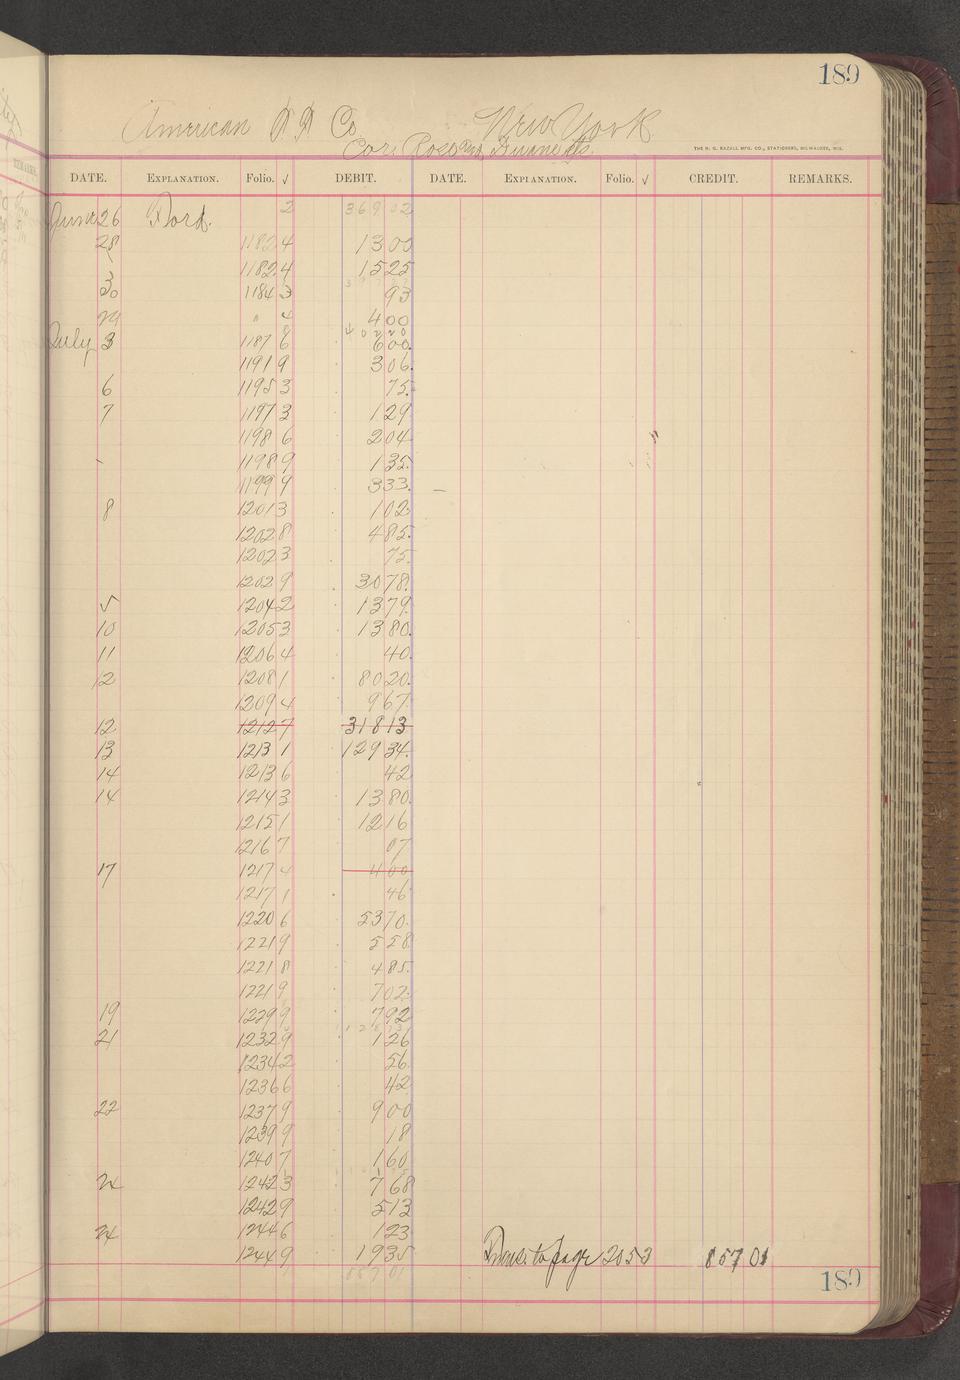 189
American Co. New York
Cor. Rose and Duane Sts.
THE H. G. RAZALL MFG. CO., STATIONERS, MILWAUKEE, WIS.
DATE. EXPLANATION. Folio. √ DEBIT. DATE. EXPLANATION. Folio. √ CREDIT. REMARKS.
June 26 Ford. 2 369 02
28 1182 4 13 00
1182 4 15 25
30 1184 3 93
29 " 4 4 00
July 3 1187 6 6 00
1191 9 3 06
6 1195 3 75
7 1197 3 1 29
1198 6 2 04
1198 9 1 35
1199 9 3 33
8 1201 3 1 02
1202 8 4 85
1202 3 75
1202 9 30 78
1204 2 13 79
10 1205 3 13 80
11 1206 4 40
12 1208 1 80 20
1209 4 9 67
12 1212 7 318 13
13 1213 1 129 34
14 1213 6 42
14 1214 3 13 80
1215 1 12 16
1216 7 07
17 1217 4 4 00
1217 1 46
1220 6 53 70
1221 9 5 58
1221 8 4 85
1221 9 7 02
19 1229 9 7 92
21 1232 9 1 26
1234 2 56
1236 6 42
22 1237 9 9 00
1239 9 18
1240 7 1 60
24 1242 3 7 68
1242 9 5 13
24 1244 6 1 23
1244 9 19 35 Trans. to page 205 3 857 01
857 01
189